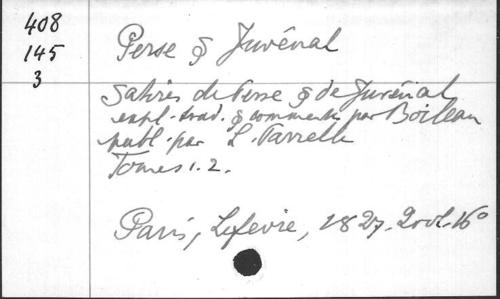 408
145
3
Perse & Juvénal
Satires de Perse & de Juvénal
expl. trad. & comment. par Boileau
publ. par L. Parrelle
Tomes 1. 2.
Paris, Lefevre, 1827. 2 vol. 16°